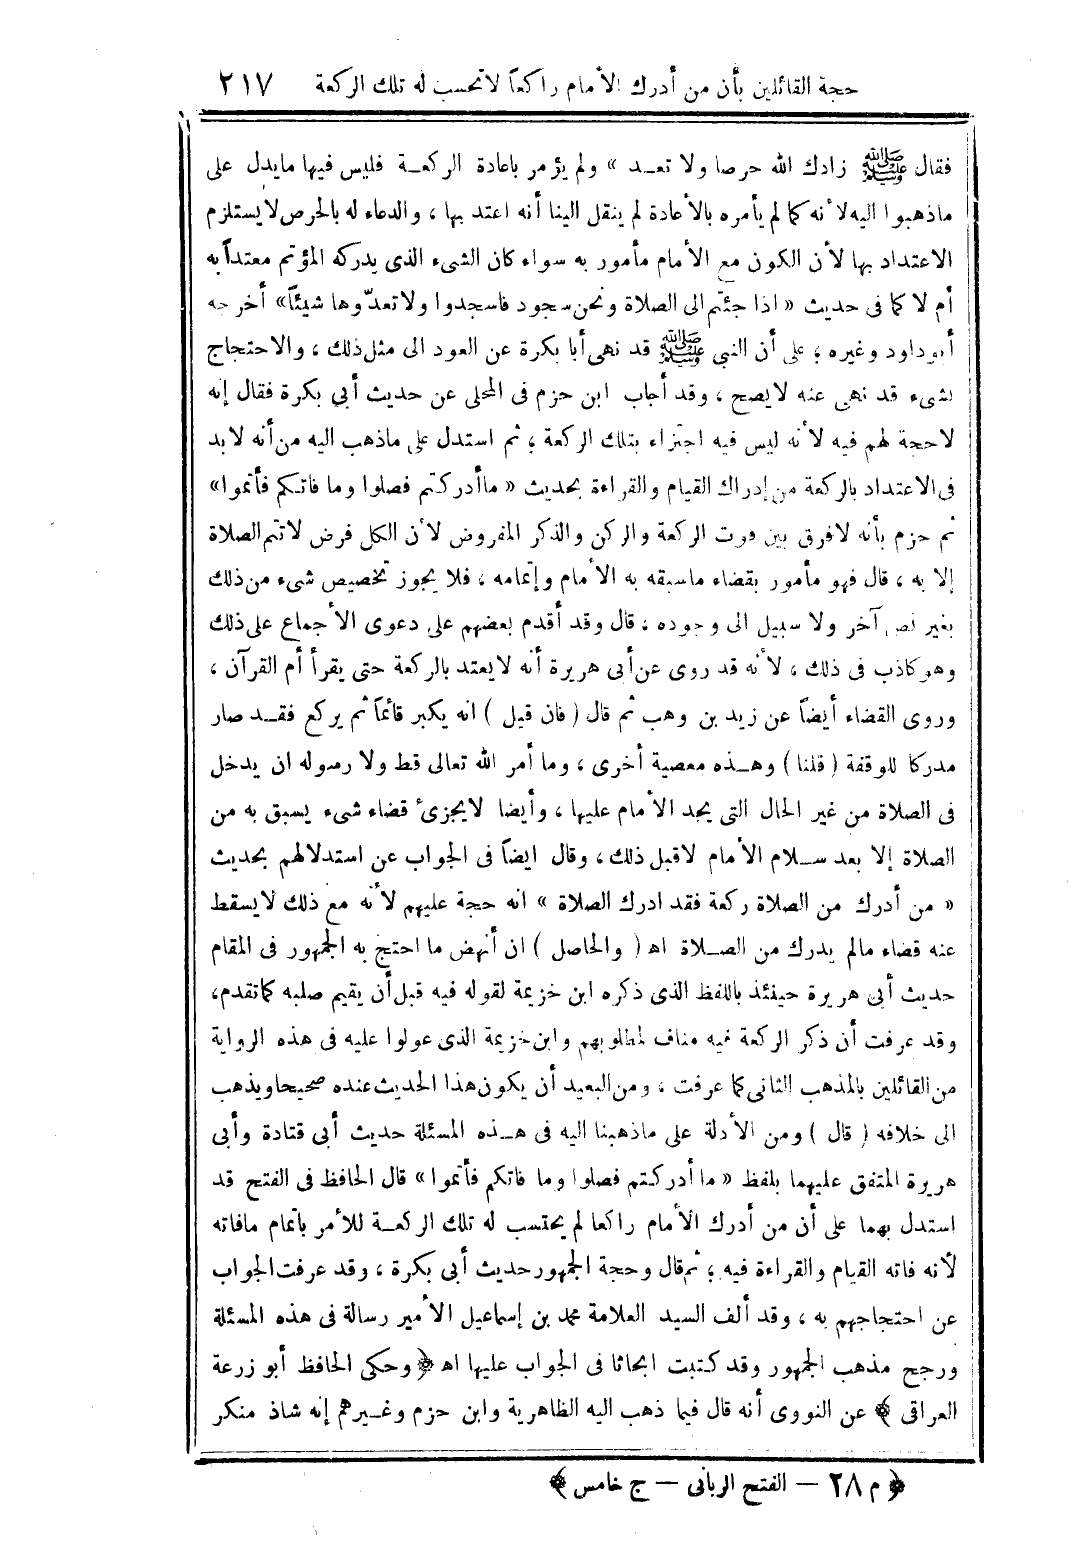 حجة القائلين بأن من أدرك الأمام راكعاً لا تحسب له تلك الركعة ٢١٧
فقال ﷺ زادك الله حرصا ولا تعد » ولم يؤمر باعادة الركعة فليس فيها مايدل على
ماذهبوا اليه لأنه كما لم يأمره بالأعادة لم ينقل الينا أنه اعتد بها ، والدعاء له بالحرص لا يستلزم
الاعتداد بها لأن الكون مع الأمام مأمور به سواء كان الشىء الذى يدركه المؤتم معتداً به
أم لا كما فى حديث « اذا جئتم الى الصلاة ونحن سجود فاسجدوا ولا تعدّوها شيئاً» أخرجه
أبو داود وغيره ؛ على أن النبي ﷺ قد نهى أبا بكرة عن العود الى مثل ذلك ، والاحتجاج
بشىء قد نهى عنه لايصح ، وقد أجاب ابن حزم فى المحلى عن حديث أبي بكرة فقال إنه
لاحجة لهم فيه لأنه ليس فيه اجتزاء بتلك الركعة ؛ ثم استدل على ماذهب اليه من أنه لابد
فى الاعتداد بالركعة من إدراك القيام والقراءة بحديث « ما أدركتم فصلوا وما فاتكم فأتموا»
ثم حزم بأنه لافرق بين فوت الركعة والركن والذكر المفروض لأن الكل فرض لاتتم الصلاة
إلا به ، قال فهو مأمور بقضاء ماسبقه به الأمام وإتمامه ، فلا يجوز تخصيص شىء من ذلك
بغير نص آخر ولا سبيل الى وجوده ، قال وقد أقدم بعضهم على دعوى الأجماع على ذلك
وهو كاذب فى ذلك ، لأنه قد روى عن أبى هريرة أنه لايعتد بالركعة حتى يقرأ أم القرآن ،
وروى القضاء أيضاً عن زيد بن وهب ثم قال ( فان قيل ) انه يكبر قائماً ثم يركع فقد صار
مدركا للوقفة ( قلنا ) وهذه معصية أخرى ، وما أمر الله تعالى قط ولا رسوله ان يدخل
فى الصلاة من غير الحال التى يجد الأمام عليها ، وأيضا لايجزئ قضاء شىء يسبق به من
الصلاة إلا بعد سلام الأمام لاقبل ذلك ، وقال ايضاً فى الجواب عن استدلالهم بحديث
« من أدرك من الصلاة ركعة فقد ادرك الصلاة » انه حجة عليهم لأنه مع ذلك لايسقط
عنه قضاء مالم يدرك من الصلاة اه ( والحاصل ) ان أنهض ما احتج به الجمهور فى المقام
حديث أبى هريرة حينئذ باللفظ الذى ذكره ابن خزيمة لقوله فيه قبل أن يقيم صلبه كما تقدم ،
وقد عرفت أن ذكر الركعة فيه مناف لمطلوبهم وابن خزيمة الذى عولوا عليه فى هذه الرواية
من القائلين بالمذهب الثانى كما عرفت ، ومن البعيد أن يكون هذا الحديث عنده صحيحا ويذهب
الى خلافه ( قال ) ومن الأدلة على ماذهبنا اليه فى هذه المسئلة حديث أبى قتادة وأبى
هريرة المتفق عليهما بلفظ « ما أدركتم فصلوا وما فاتكم فأتموا» قال الحافظ فى الفتح قد
استدل بهما على أن من أدرك الأمام راكعا لم يحتسب له تلك الركعة للأمر باتمام مافاته
لأنه فاته القيام والقراءة فيه ؛ ثم قال وحجة الجمهور حديث أبى بكرة ، وقد عرفت الجواب
عن احتجاجهم به ، وقد ألف السيد العلامة محمد بن إسماعيل الأمير رسالة فى هذه المسئلة
ورجح مذهب الجمهور وقد كتبت ابحاثا فى الجواب عليها اه ﴿ وحكى الحافظ أبو زرعة
العراقى ﴾ عن النووى أنه قال فيما ذهب اليه الظاهرية وابن حزم وغيرهم إنه شاذ منكر
﴿ م ٢٨ — الفتح الربانى — ج خامس ﴾